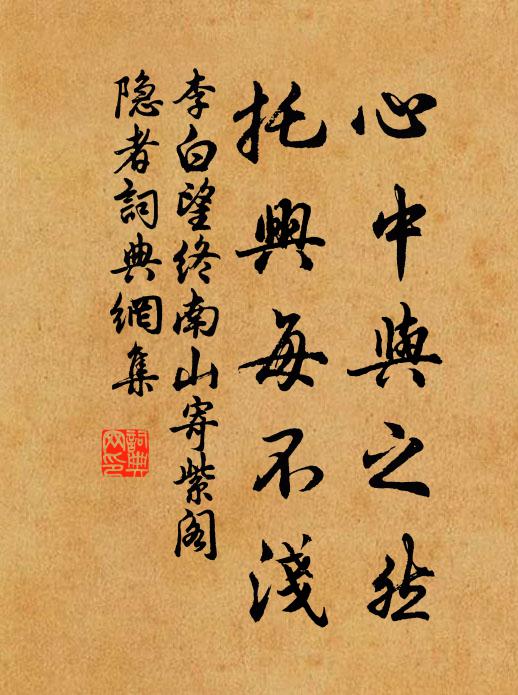 心中與之然
托興每不淺
李白望终南山寄紫阁
隐者詞典網集
詞典網印